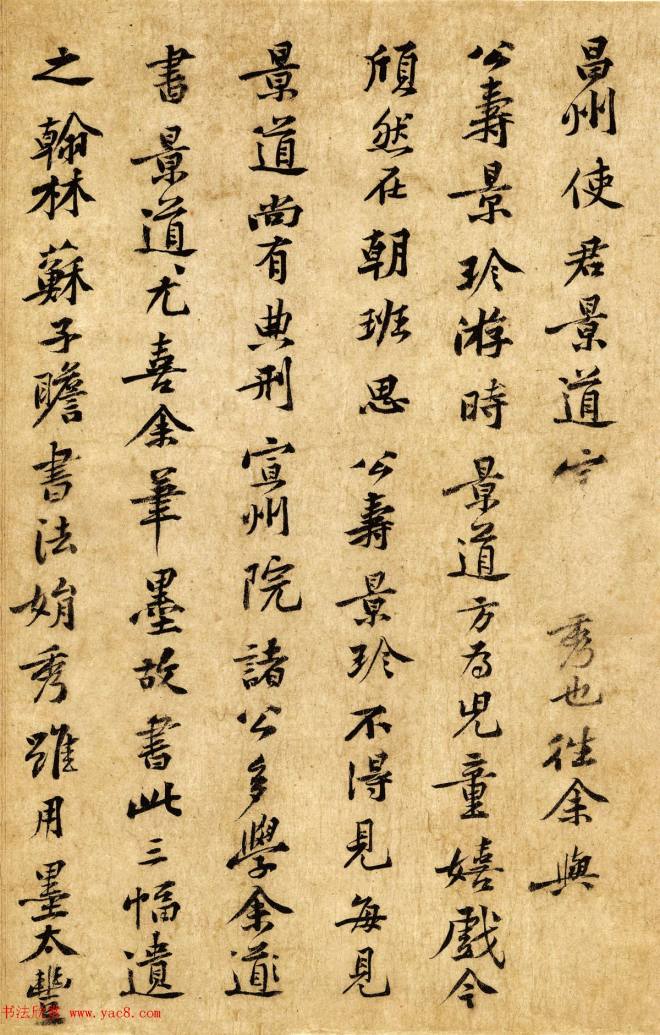 昌州使君景道 秀也往余與
公壽景珍游時景道方為兒童嬉戲今
頎然在朝班思公壽景珍不得見每見
景道尚有典刑宣州院諸公多學余道
書景道尤喜余筆墨故書此三幅遺
之翰林蘇子瞻書法娟秀雖用墨太豐
书法欣赏 www.yac8.com